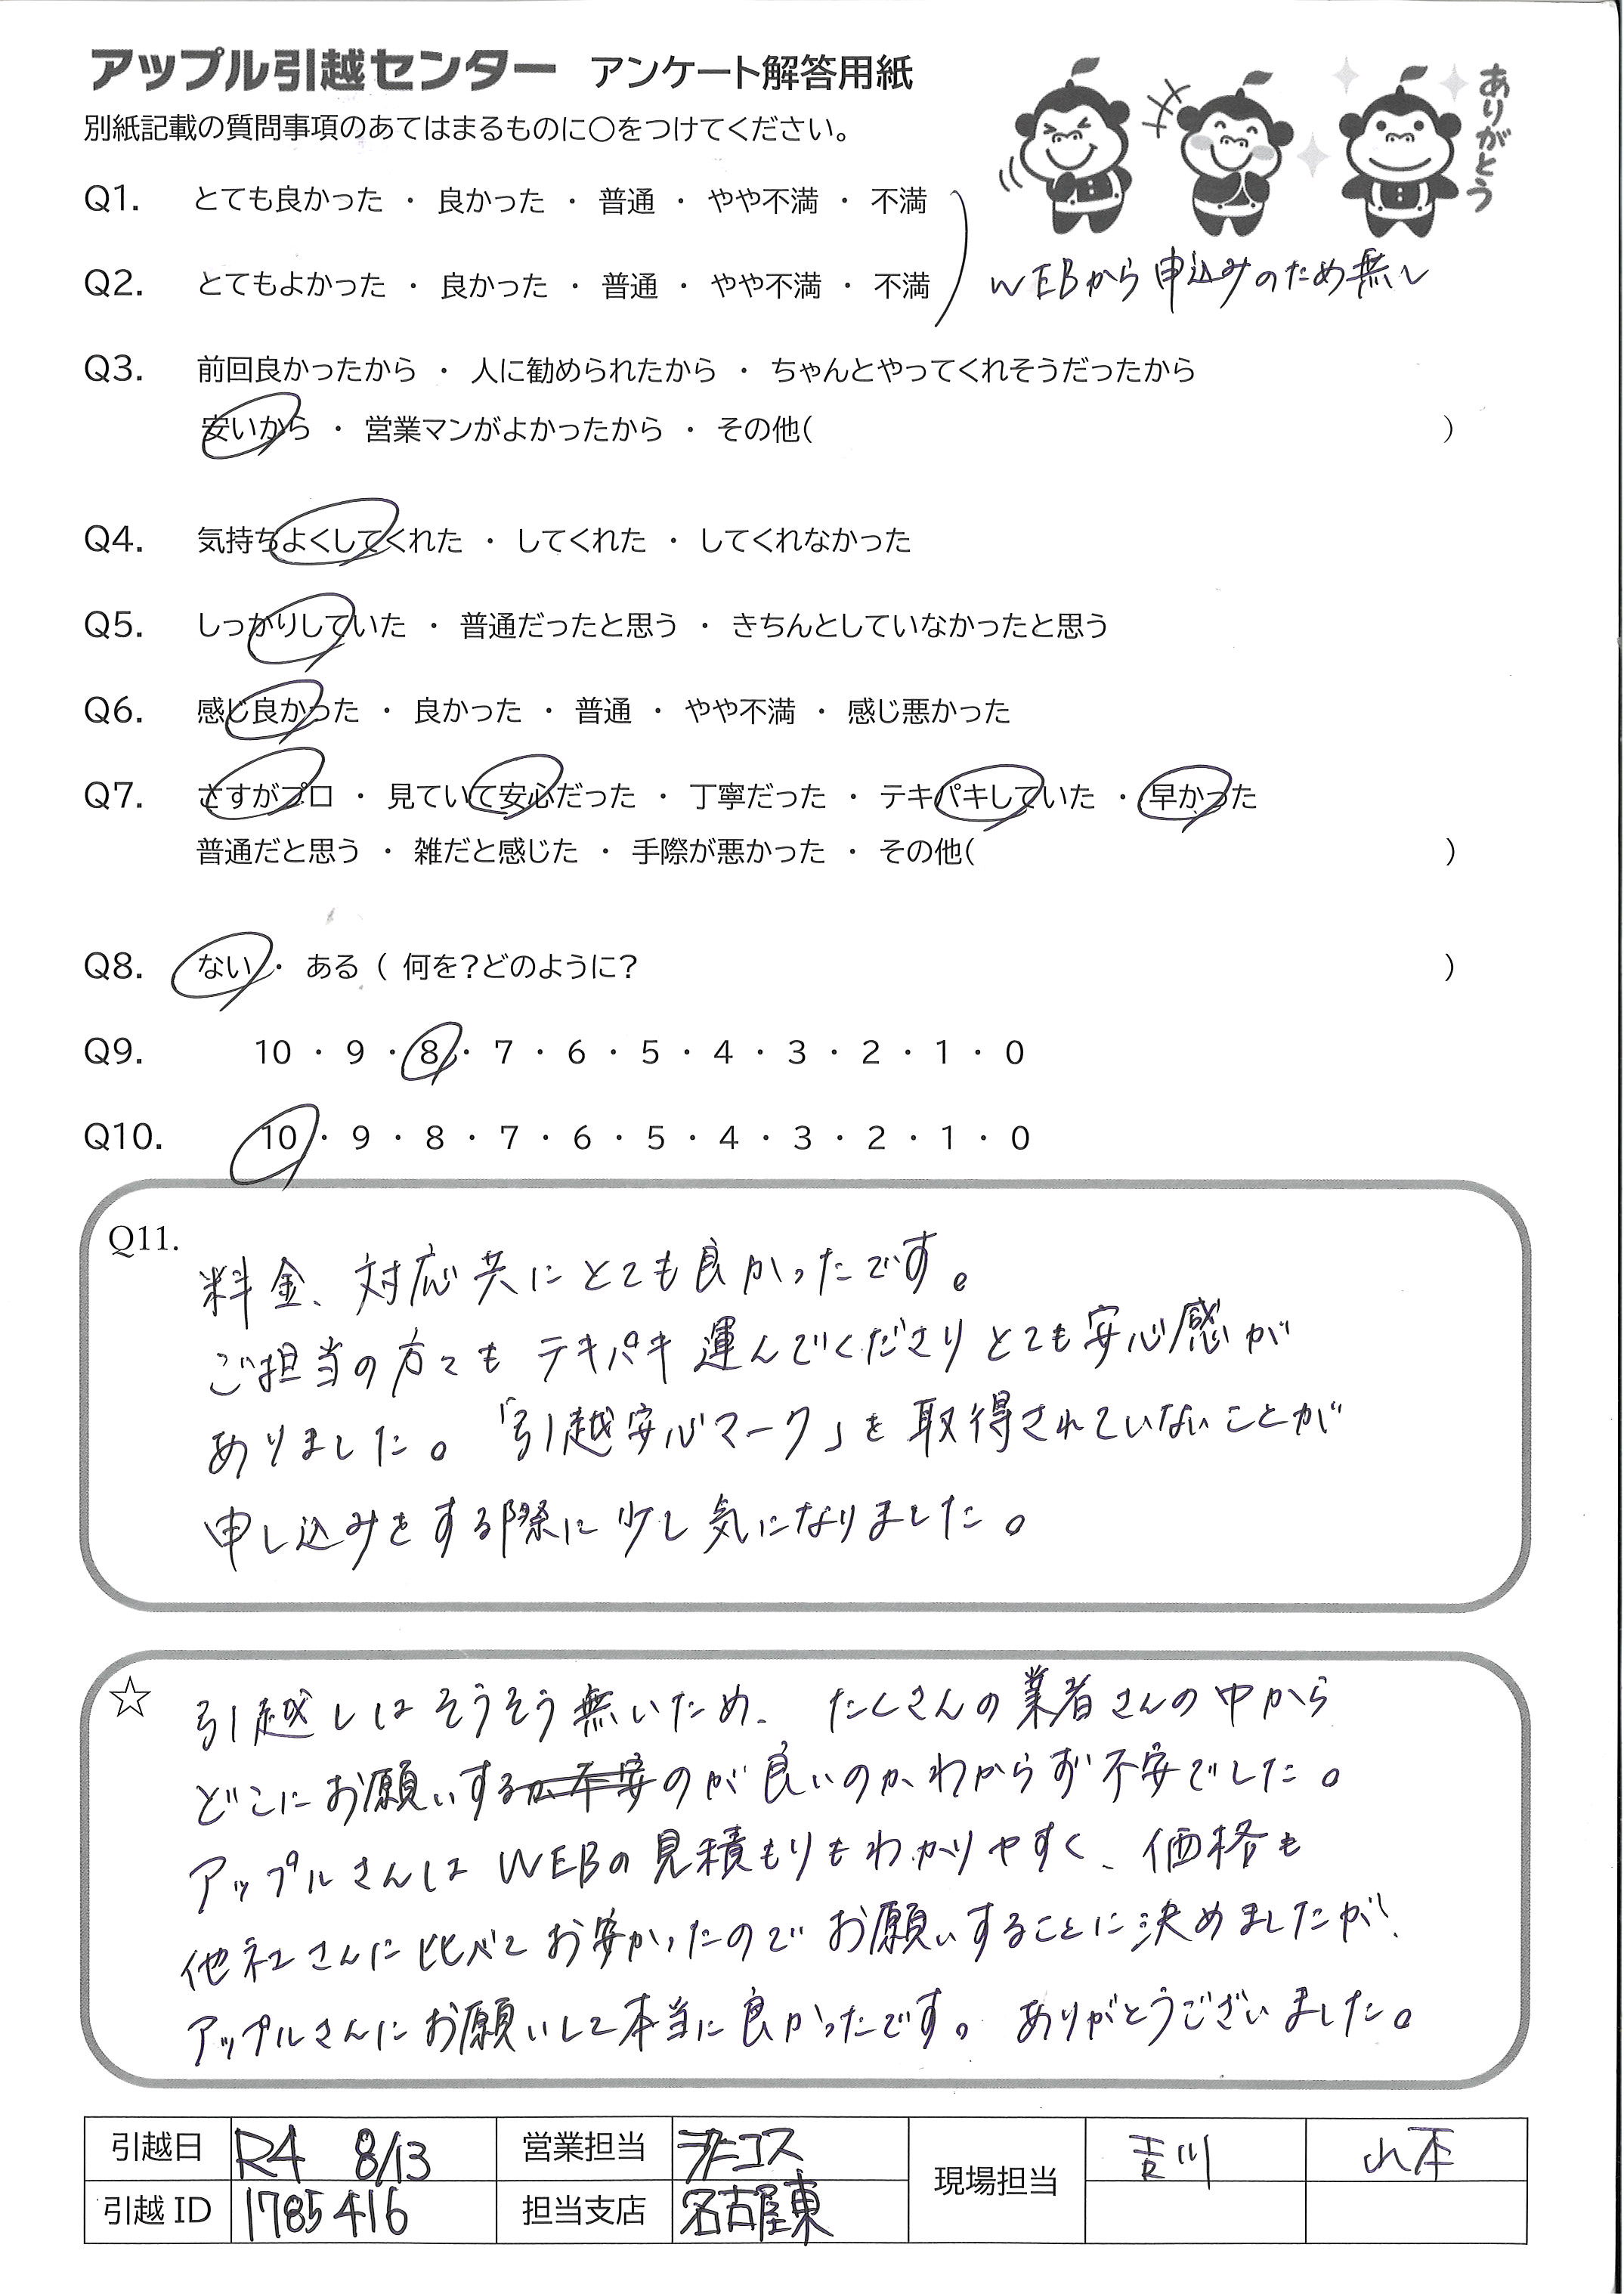 アップル引越センター アンケート解答用紙
ありがとう
別紙記載の質問事項のあてはまるものに○をつけてください。
Q1. とても良かった ・ 良かった ・ 普通 ・ やや不満 ・ 不満
Q2. とてもよかった ・ 良かった ・ 普通 ・ やや不満 ・ 不満
WEBから申込みのため無し
Q3. 前回良かったから ・ 人に勧められたから ・ ちゃんとやってくれそうだったから
安いから ・ 営業マンがよかったから ・ その他( )
Q4. 気持ちよくしてくれた ・ してくれた ・ してくれなかった
Q5. しっかりしていた ・ 普通だったと思う ・ きちんとしていなかったと思う
Q6. 感じ良かった ・ 良かった ・ 普通 ・ やや不満 ・ 感じ悪かった
Q7. さすがプロ ・ 見ていて安心だった ・ 丁寧だった ・ テキパキしていた ・ 早かった
普通だと思う ・ 雑だと感じた ・ 手際が悪かった ・ その他( )
Q8. ない ・ ある ( 何を?どのように? )
Q9. 10 ・ 9 ・ 8 ・ 7 ・ 6 ・ 5 ・ 4 ・ 3 ・ 2 ・ 1 ・ 0
Q10. 10 ・ 9 ・ 8 ・ 7 ・ 6 ・ 5 ・ 4 ・ 3 ・ 2 ・ 1 ・ 0
Q11. 料金、対応共にとても良かったです。
ご担当の方々もテキパキ運んでくださりとても安心感が
ありました。「引越安心マーク」を取得されていないことが
申し込みをする際に少し気になりました。
☆ 引越しはそうそう無いため、たくさんの業者さんの中から
どこにお願いするか不安のが良いのかわからず不安でした。
アップルさんはWEBの見積もりもわかりやすく、価格も
他社さんに比べてお安かったのでお願いすることに決めましたが、
アップルさんにお願いして本当に良かったです。ありがとうございました。
引越日 R4 8/13 営業担当 現場担当 吉川 山本
引越ID 1785416 担当支店 名古屋東